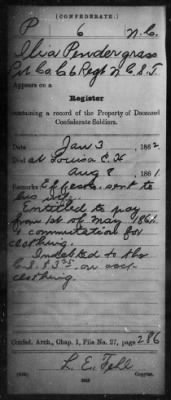 (CONFEDERATE.)
P 6 N.C.
Ilva Pendergrass
Pvt Co. C 6 Regt N.C.S.T.
Appears on a
Register
containing a record of the Property of Deceased
Confederate Soldiers.
Date Jan 3, 1862
Died at Louisa C. H.
Aug 8, 1861
Remarks Effects sent to
his
Entitled to pay
from 1st of May 1861
& commutation for
clothing.
Indebted to the
C.S. on acct
clothing.
Confed. Arch., Chap. 1, File No. 27, page 286
L. E. Fehl
Copyist.